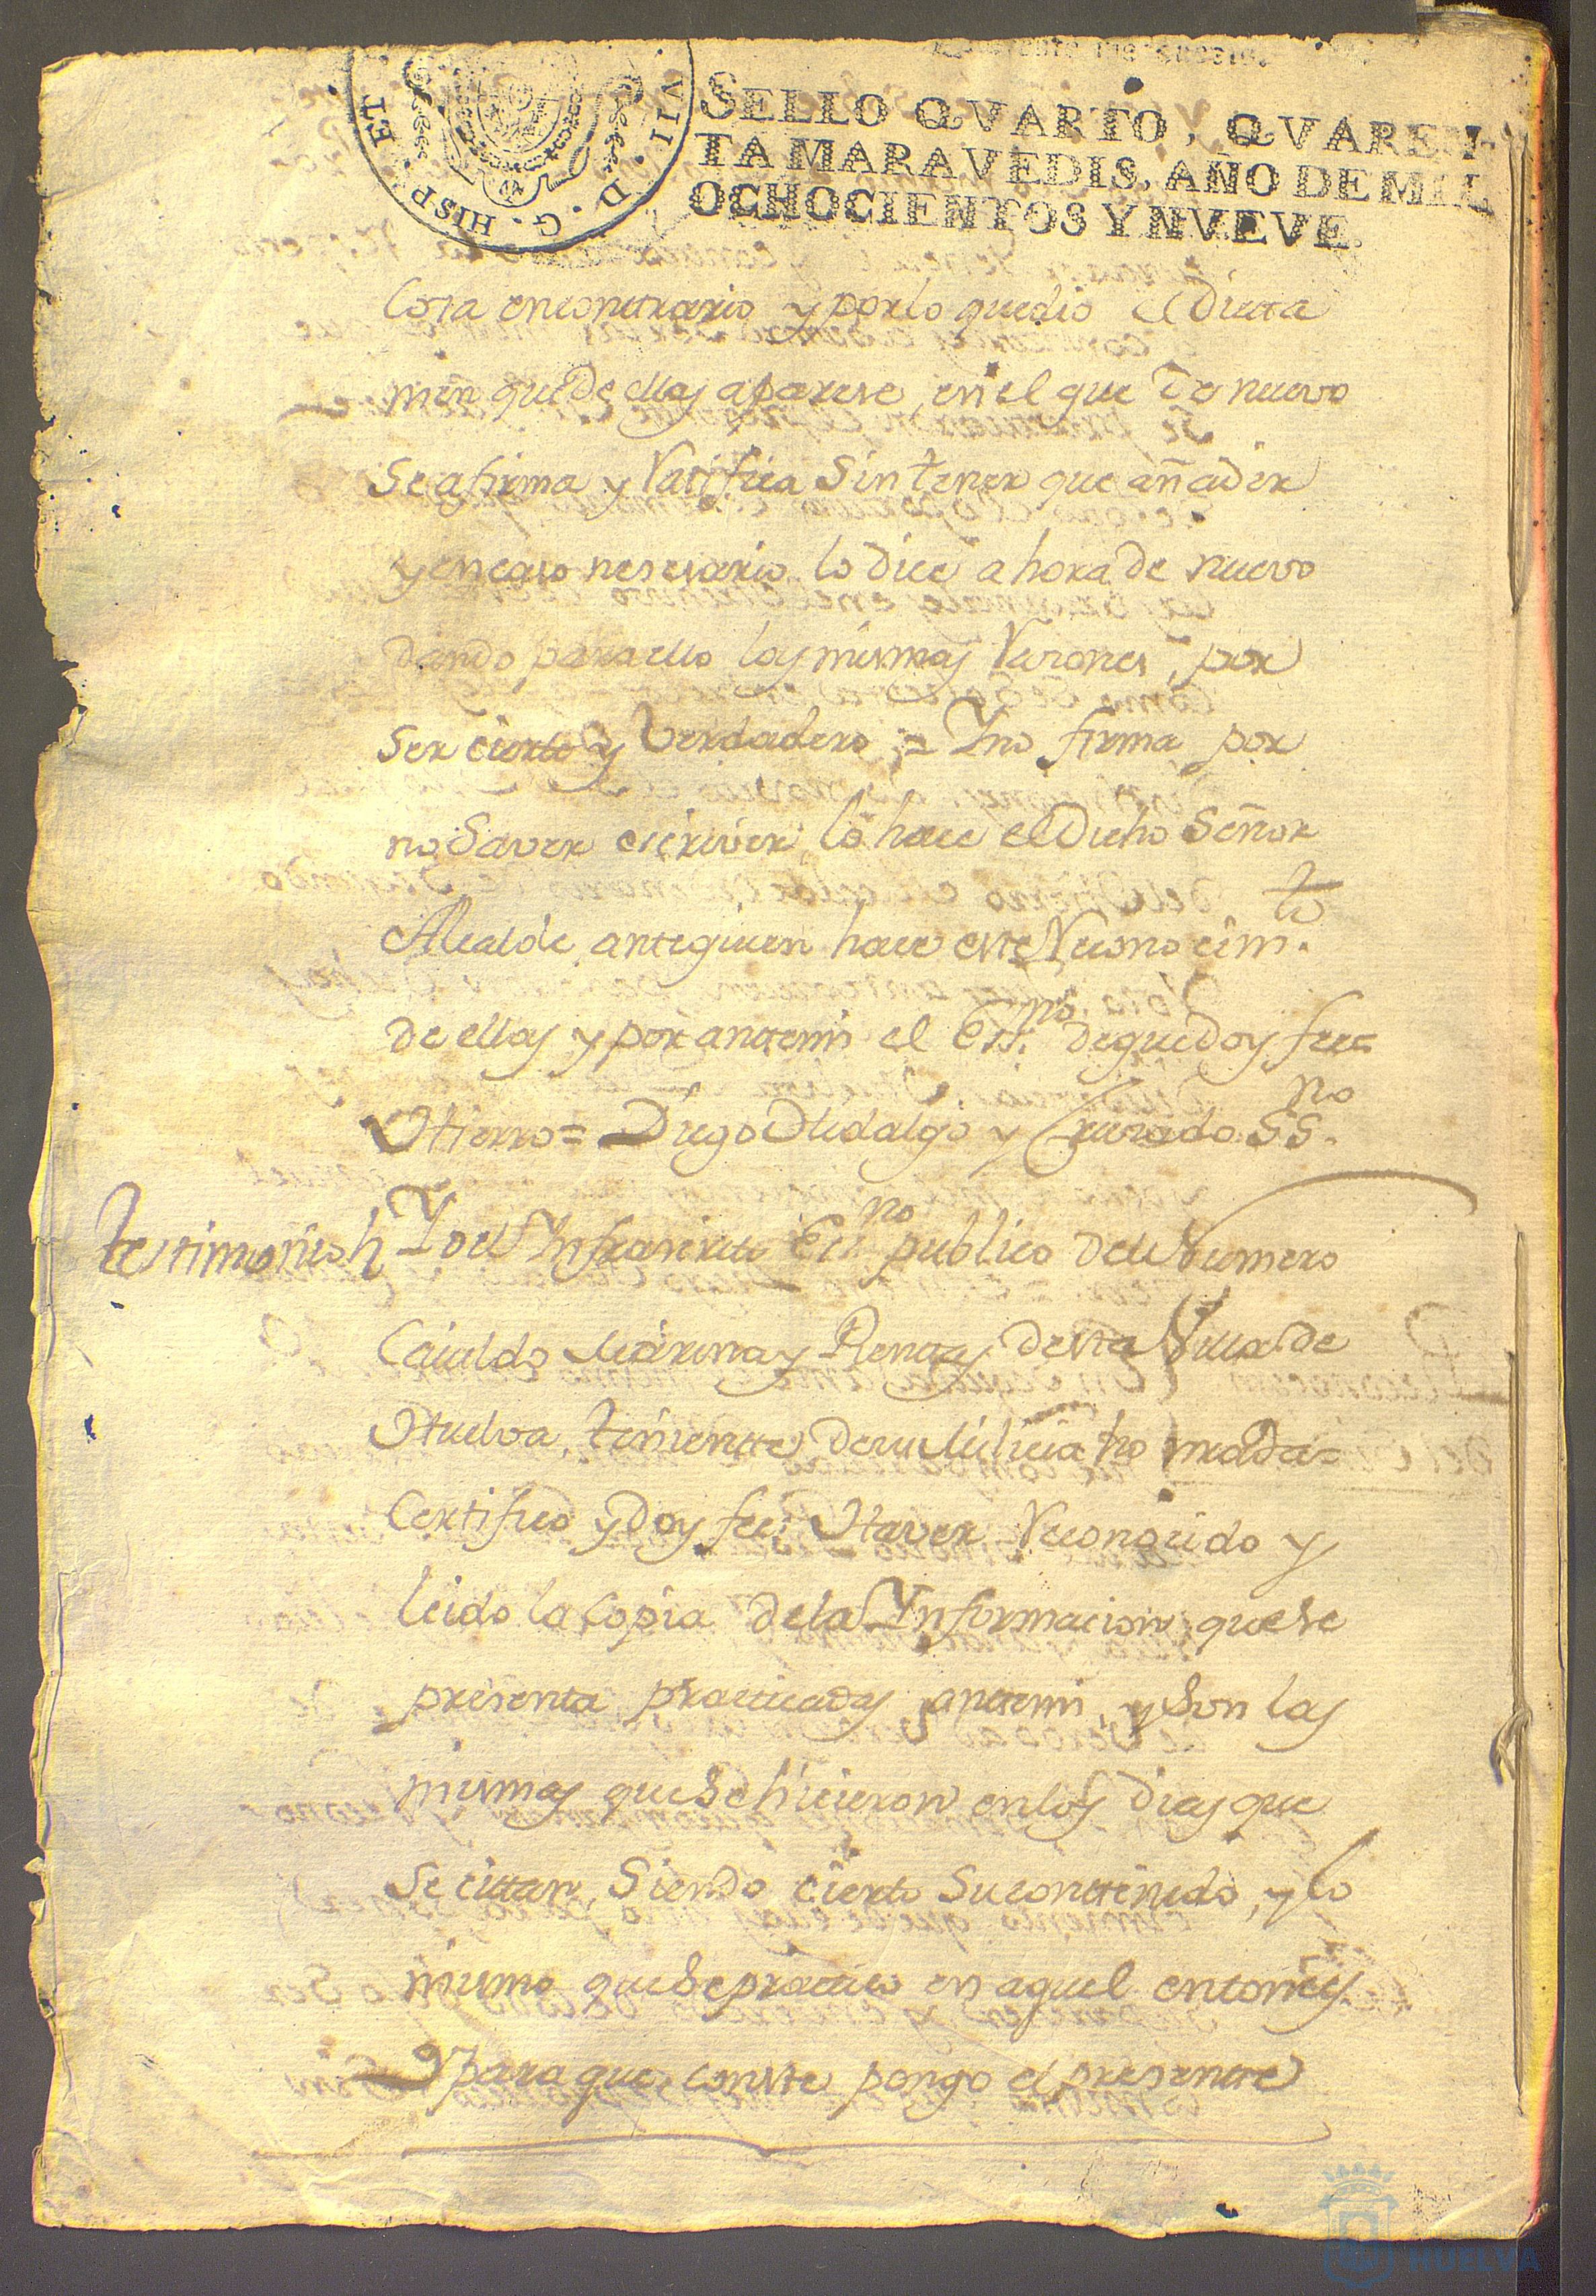 VII. D. G. HISP. ET
SELLO QVARTO, QVAREN-
TA MARAVEDIS, AÑO DE MIL
OCHOCIENTOS Y NVEVE.
Cosa encontrario y porlo quedio el Dicta
men quede ellas aparese, en el que De nuevo
Se afirma y Ratifica Sin tener que añadir
y encaso nesesario lo dice ahora de nuevo
dando para ello las mismas Razones, por
Ser cierto y Verdadero = Y no firma por
no Saver escrivir, lo hace el Dicho Señor
Alcalde, antequien hace este Reconocim.to
de ellas y por antemi el Ess.no dequedoy fee=
Hierro= Diego Hidalgo y Jurado SS.no
Testimonio Yo el Ynfrascrito Ess.no publico del Numero
Cavildo Marina y Rentas desta Villa de
Huelva, teniente de su Milicia
Certifico y Doy fee: Haver Reconocido y
leido la Copia dela Ynformacion, que se
presenta practicadas antemi, y Son las
mismas que Se hicieron en los Dias que
Se cittan, Siendo cierto Su conttenido, y lo
mismo que Se practico en aquel entonces
Y para que conste pongo el presentte
HUELVA